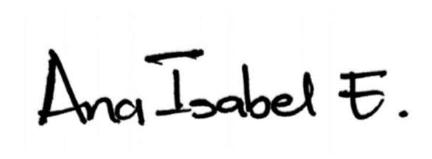 Ana Isabel E.